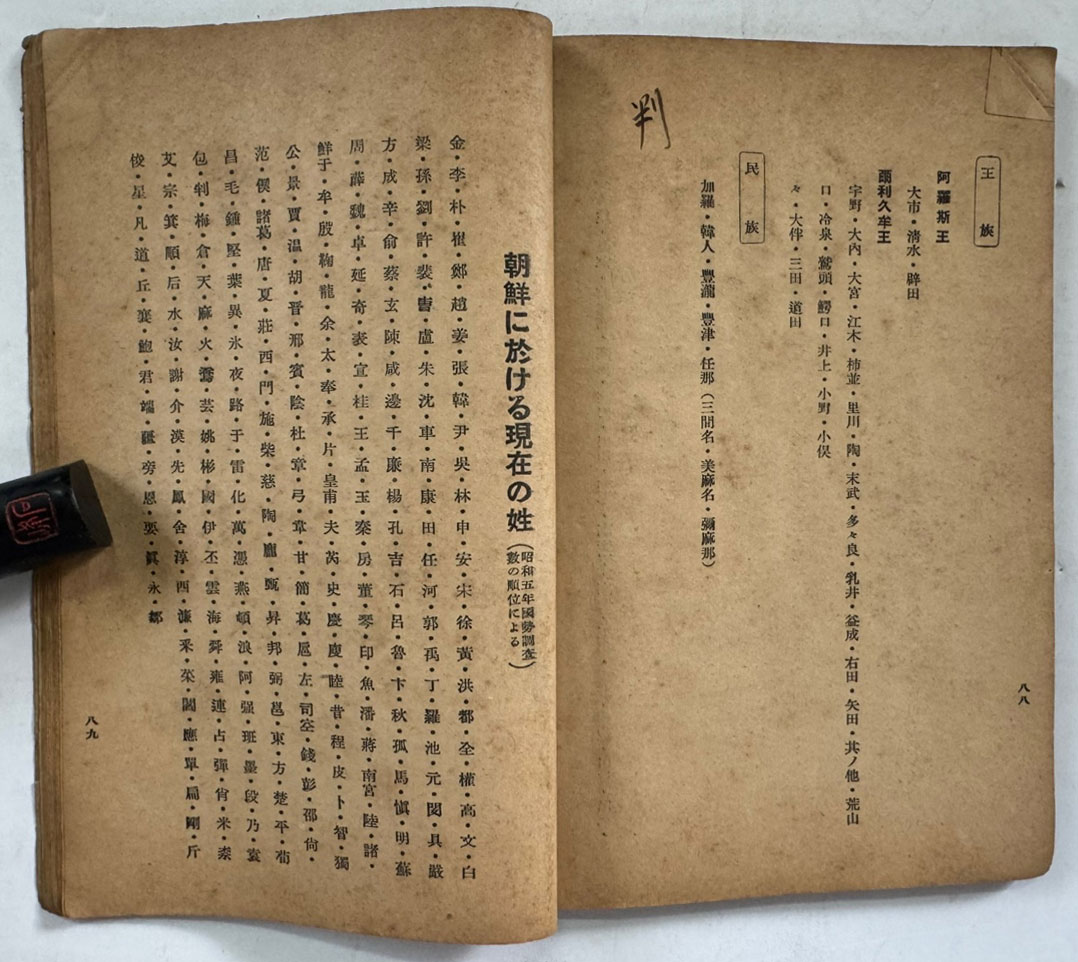 王族
阿羅斯王
大市・清水・辟田
爾利久牟王
宇野・大內・大宮・江木・柿並・里川・陶・末武・多々良・乳井・益成・右田・矢田・其ノ他・荒山
口・冷泉・鷲頭・鰐口・井上・小野・小俣
々・大伴・三田・道田
民族
加羅・韓人・豐瀧・豐津・任那(三間名・美麻名・彌麻那)
判
八八
朝鮮に於ける現在の姓(昭和五年國勢調査數の順位による)
金・李・朴・崔・鄭・趙・姜・張・韓・尹・吳・林・申・安・宋・徐・黃・洪・都・全・權・高・文・白
梁・孫・劉・許・裴・曺・盧・朱・沈・車・南・康・田・任・河・郭・禹・丁・羅・池・元・閔・具・嚴
方・成・辛・俞・蔡・玄・陳・咸・邊・千・廉・楊・孔・吉・石・呂・魯・卞・秋・孤・馬・愼・明・蘇
周・薛・魏・卓・延・奇・表・宣・桂・王・孟・玉・秦・房・董・琴・印・魚・潘・蔣・南宮・陸・諸・
鮮于・牟・殷・鞠・龍・余・太・奉・承・片・皇甫・夫・芮・史・慶・慶・睦・昔・程・皮・卜・智・獨
公・景・賈・温・胡・晋・邢・賓・陰・杜・章・弓・韋・甘・簡・葛・扈・左・司空・錢・彭・邵・尙・
范・偰・諸葛・唐・夏・莊・西・門・施・柴・慈・陶・龐・甄・昇・邦・弼・邕・東・方・楚・平・荀
昌・毛・鍾・堅・葉・異・氷・夜・路・于・雷・化・萬・憑・燕・頓・浪・阿・强・班・墨・段・乃・袁
包・判・梅・倉・天・麻・火・喬・芸・姚・彬・國・伊・丕・雲・海・舜・雍・連・占・彈・肖・米・桼
艾・宗・箕・順・后・水・汝・謝・介・漠・先・鳳・舍・淳・西・濂・釆・菜・閻・應・單・扁・剛・斤
俊・星・凡・道・丘・襄・鮑・君・端・疆・旁・恩・要・眞・永・鄒
八九